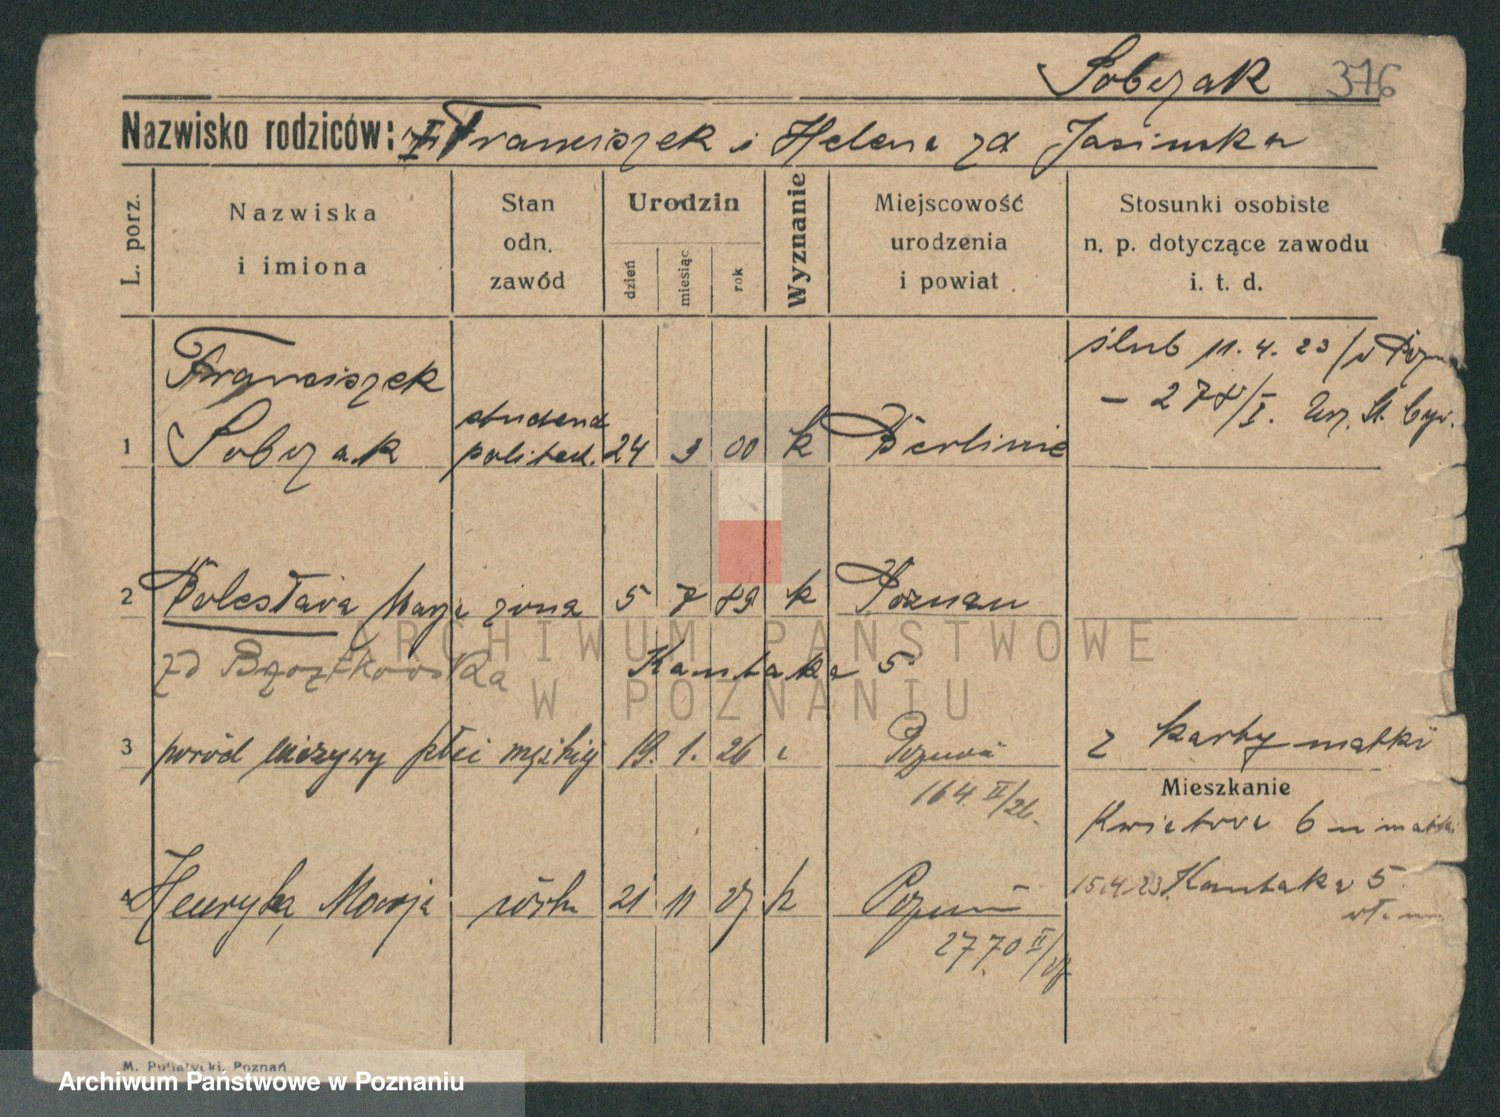 Sobczak 376
Nazwisko rodziców: I Franciszek i Helena zd Jasińska
L. porz.
Nazwiska i imiona
Stan odn. zawód
Urodzin
dzień
miesiąc
rok
Wyznanie
Miejscowość urodzenia i powiat
Stosunki osobiste n. p. dotyczące zawodu i. t. d.
ślub 11.4.23
Franciszek
— 278/I. Urz. St. Cyw.
1 Sobczak 24 3 00 k Berlinie
2 Bolesława Marja żona 5 7 89 k Poznań
zd Brzozkowska Kantaka 5
3 poród nieżywy płci męskiej 19. 1. 26 Poznań z karty matki
164 II/26.
Mieszkanie
Kwiatowa 6 u matki
4 Henryka Marja córka 21 11 27 k Poznań
15.4.23 Kantaka 5
2770 II/27
M. Putiatycki, Poznań
ARCHIWUM PAŃSTWOWE
W POZNANIU
Archiwum Państwowe w Poznaniu